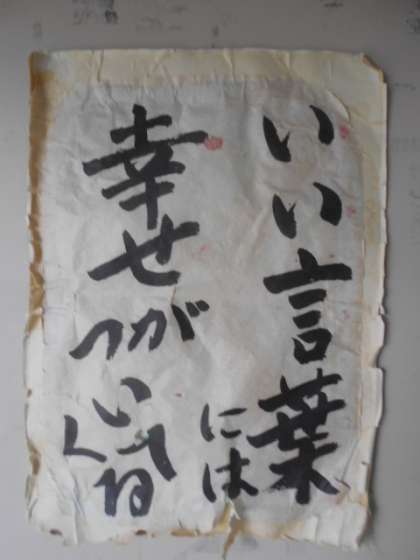 いい言葉には
幸せがついてくる